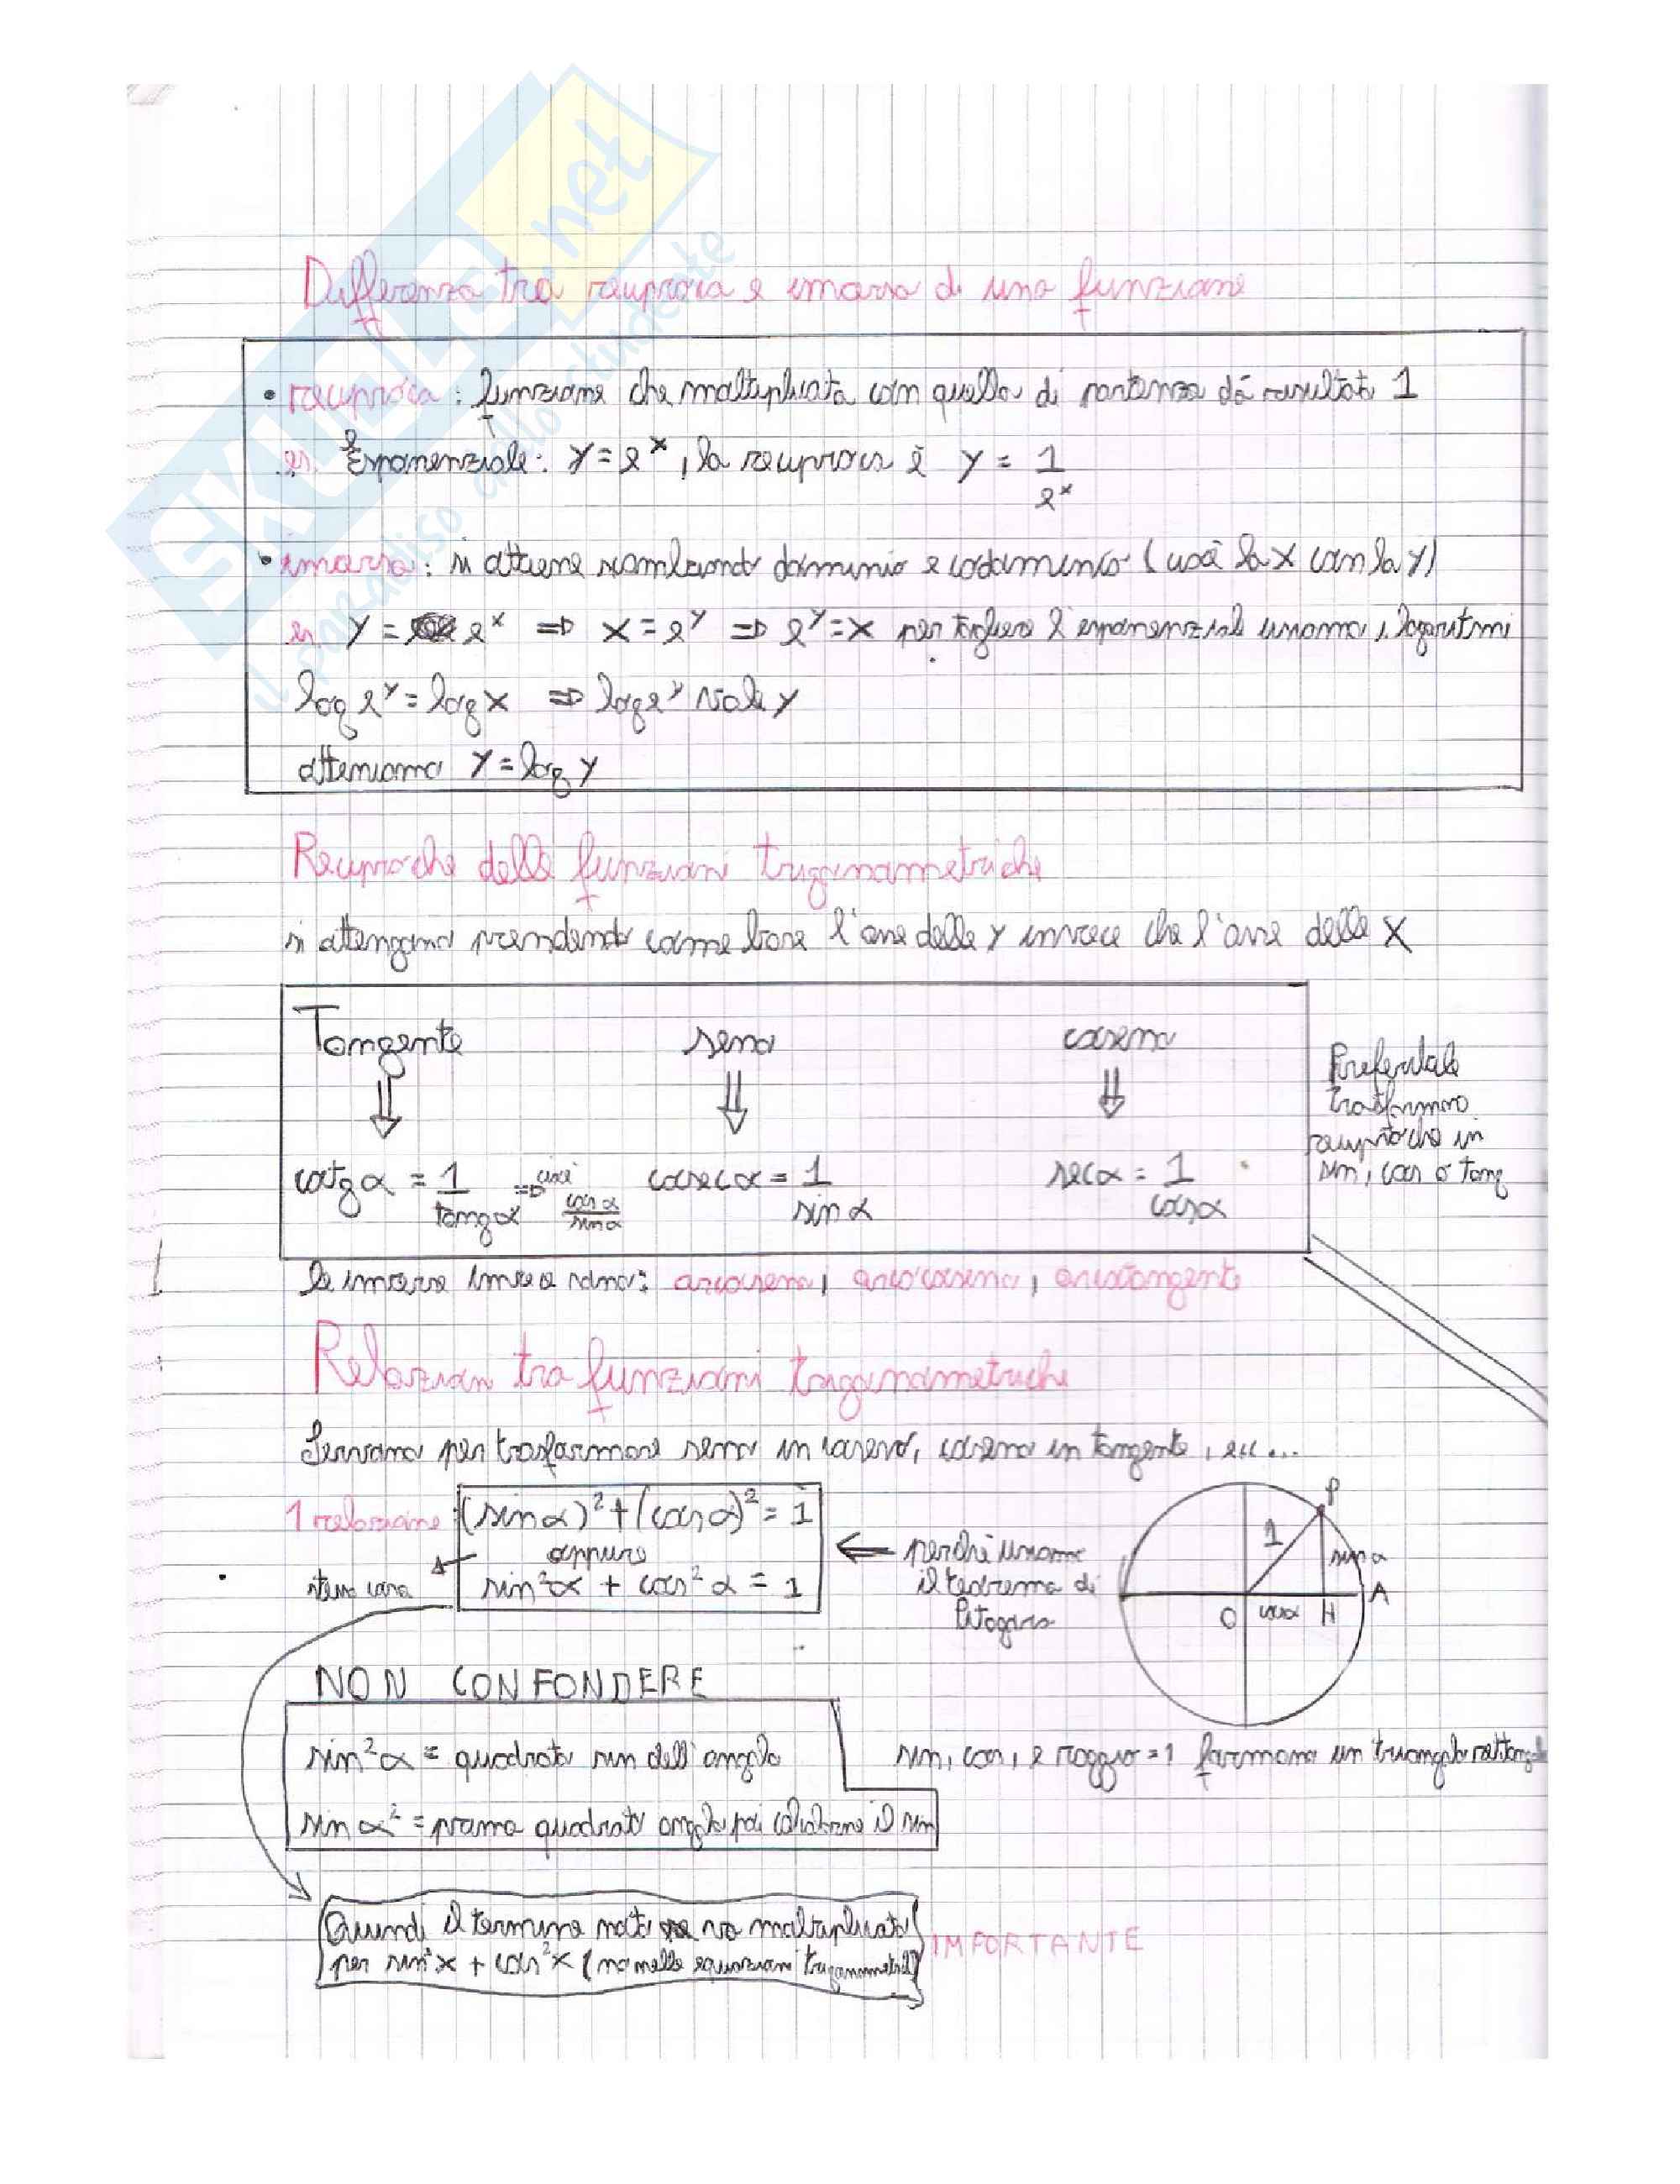 SKUOLA.net
il paradiso dello studente
Differenza tra reciproca e inversa di una funzione
• reciproca: funzione che moltiplicata con quella di partenza dà risultato 1
es. Esponenziale: y = e^x, la reciproca è y = 1/e^x
• inversa: si ottiene scambiando dominio e codominio (cioè la x con la y)
es y = e^x => x = e^y => e^y = x per togliere l'esponenziale usiamo i logaritmi
log e^y = log x => log e^y vale y
otteniamo y = log y
Reciproche delle funzioni trigonometriche
si ottengono prendendo come base l'asse delle y invece che l'asse delle x
Tangente seno coseno
cotg α = 1/tang α => cioè cos α/sin α cosec α = 1/sin α sec α = 1/cos α
Preferibile
trasformare
reciproche in
sin, cos o tang
le inverse invece sono: arcoseno, arcocoseno, arcotangente
Relazioni tra funzioni trigonometriche
Servono per trasformare seno in coseno, coseno in tangente, ecc...
1 relazione: (sin α)² + (cos α)² = 1
oppure
stessa cosa sin²α + cos²α = 1
perché usiamo
il teorema di
Pitagora
P
1
sin α
O cos α H A
NON CONFONDERE
sin²α = quadrato sin dell'angolo
sin α² = prima quadrato angolo poi calcolarne il sin
sin, cos, e raggio = 1 formano un triangolo rettangolo
Quindi il termine noto va moltiplicato
per sin²x + cos²x (no nelle equazioni trigonometriche)
IMPORTANTE